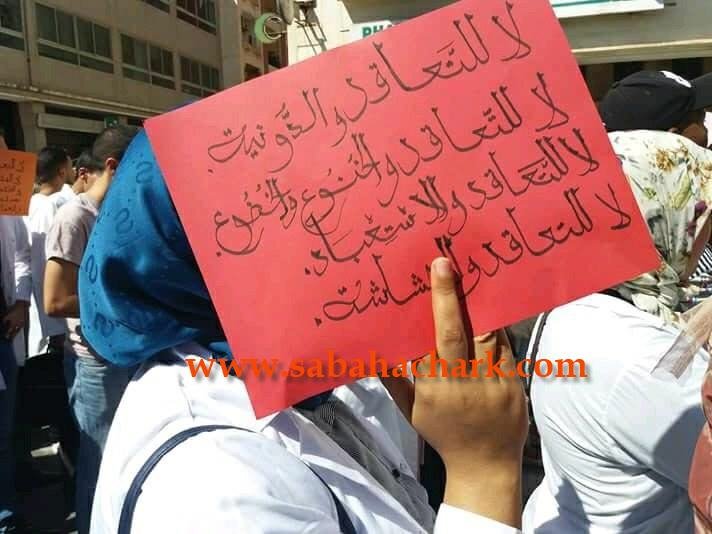 لا للتَّعاقد والدُّونية.
لا للتَّعاقد والخنوع والخضوع.
لا للتَّعاقد والاستعباد.
لا للتعاقد والهشاشة.
www.sabahachark.com
PH